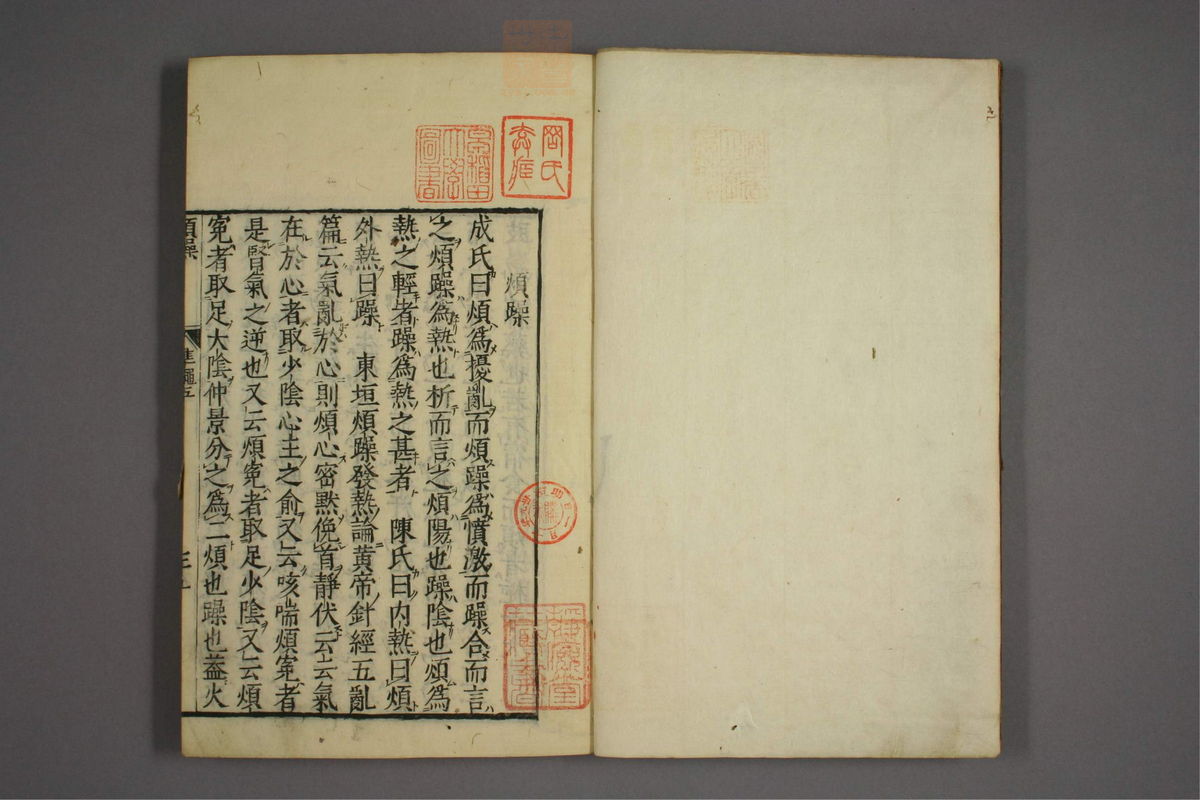 煩躁
成氏曰煩爲擾亂而煩躁爲憤激而躁合而言
之煩躁爲熱也析而言之煩陽也躁陰也煩爲
熱之輕者躁爲熱之甚者 陳氏曰内熱曰煩
外熱曰躁 東垣煩躁發熱論黄帝針經五亂
篇云氣亂於心則煩心密黙俛首靜伏云云氣
在於心者取少陰心主之俞又云咳喘煩寃者
是腎氣之逆也又云煩寃者取足少陰又云煩
寃者取足太陰仲景分之爲二煩也躁也蓋火
煩躁
準繩五
岡氏
早稲田
大學
圖書